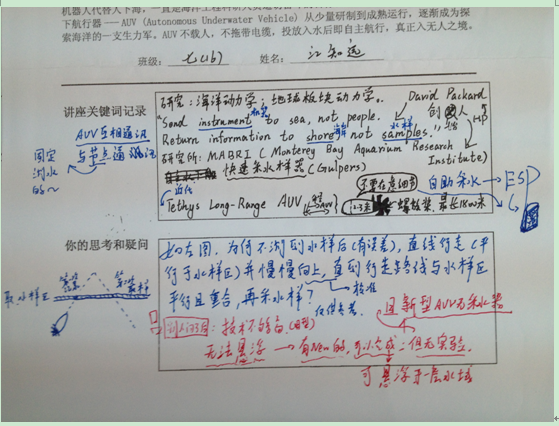 机器人代替人下海，一直是海洋工程科研人员追
下航行器 — AUV (Autonomous Underwater Vehicle) 从少量研制到成熟运行，逐渐成为探
索海洋的一支生力军。AUV 不载人，不拖带电缆，投放入水后即自主航行，真正入无人之境。
班级： 七(16) 姓名： 江知遥
讲座关键词记录
研究：海洋动力学；地球板块动力学。
"Send instrument to sea, not people.
Return information to shore not samples."
水样
David Packard
创 人
HP
研究所：MABRI ( Monterey Bay Aquarium Research
Institute)
快速采水样器 (Gulpers)
近代
Tethys Long-Range AUV
不要在意细节
自助采水 → ESP
螺旋桨，最长1800米
AUV互相通讯
与节点通讯
固定
测水
的～
你的思考和疑问
如左图，为何不测到水样后（有误差），直线行走（平
行于水样区）并慢慢向上，直到行走路线与水样区
平行且重合，再采水样？
校准
仅供参考。
采水样区
技术不够高（旧型）
无法悬浮 → 有New的，可以合成；但无实验。
且新型AUV无采水器
可悬浮于一层水域